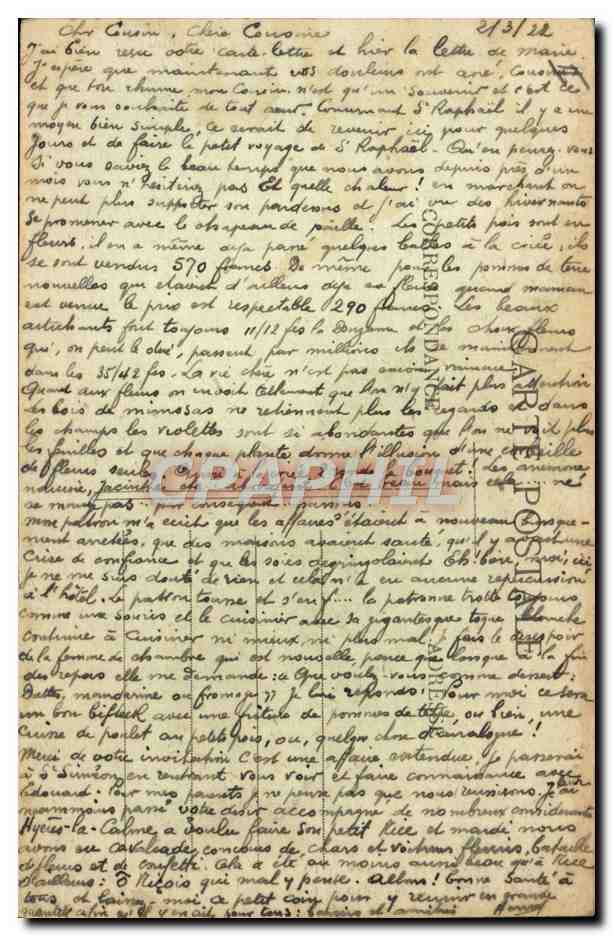 Cher Cousin, Chère Cousine 2/3/22
J'ai bien reçu votre carte-lettre et hier la lettre de marie.
J'espère que maintenant vos douleurs ont cessé, Cousine
et que ton rhume mon Cousin n'est qu'un souvenir et c'est ce
que je vous souhaite de tout cœur. Concernant St Raphaël il y a un
moyen bien simple, ce serait de revenir ici pour quelques
Jours et de faire le petit voyage de St Raphaël - Qu'en pensez-vous
Si vous saviez le beau temps que nous avons depuis près d'un
mois vous n'hésiteriez pas Et quelle chaleur! en marchant on
ne peut plus supporter son pardessus et j'ai vu des hivernants
se promener avec le chapeau de paille. Les petits pois sont en
fleurs, il en a même déjà passé quelques balles à la criée, ils
se sont vendus 570 francs. De même pour les pommes de terre
nouvelles que étaient d'ailleurs déjà en fleurs quand maman
est venue le prix est respectable 290 francs. Les beaux
artichauts font toujours 11/12 frs la Douzaine et les choux-fleurs
qui, on peut le dire, passent par millions ils se maintiennent
dans les 35/42 frs. La vie chère n'est pas encore vaincue
Quant aux fleurs on en voit tellement que l'on n'y fait plus attention
Les bois de mimosas ne retiennent plus les regards et dans
les champs les violettes sont si abondantes que l'on ne voit plus
les feuilles et que chaque plante donne l'illusion d'une corbeille
de fleurs seules. bouquet! Les anémones
Jacinthe C'est beau, mais cela
se mange pas par conséquent
mon patron m'a écrit que les affaires étaient à nouveau
ment arrêtées, que des maisons avaient sauté, qu'il y avait une
Crise de confiance et que les soies dégringolaient Eh! bien, moi, ici
je ne me suis douté de rien et cela n'a eu aucune répercussion
à l'hôtel. Le patron tousse et la patronne trotte toujours
comme une souris et le cuisinier avec sa gigantesque toque blanche
continue à Cuisiner ni mieux, ni plus mal. Je fais le désespoir
de la femme de chambre qui est nouvelle parce que lorsque à la fin
des repas elle me demande: « Que voulez-vous comme dessert:
Dattes, mandarine ou fromage?? Je lui réponds: Pour moi ce sera
un bon bifteck avec une friture de pommes de terre, ou bien, une
Cuisse de poulet au petits pois, ou, quelque chose d'analogue!
Merci de votre invitation C'est une affaire entendue, je passerai
à St Simeon en rentrant vous voir et faire connaissance avec
Edouard. Pour mes parents je ne pense pas que nous réussirons. J'ai
néanmoins passé votre désir accompagné de nombreux considérants
Hyères-la-Calme a voulu faire son petit Nice et mardi nous
avons eu Cavalcade, concours de chars et voitures fleuries, bataille
de fleurs et de confetti. Cela a été au moins aussi beau qu'à Nice
d'ailleurs: Ô Niçois qui mal y pense. Allons! bonne Santé à
tous et moi ce petit coin pour y revenir en grande
pour tous: baisers et amitiés Henri
CARTE POSTALE
CORRESPONDANCE
ADRESSE
CPAPHIL